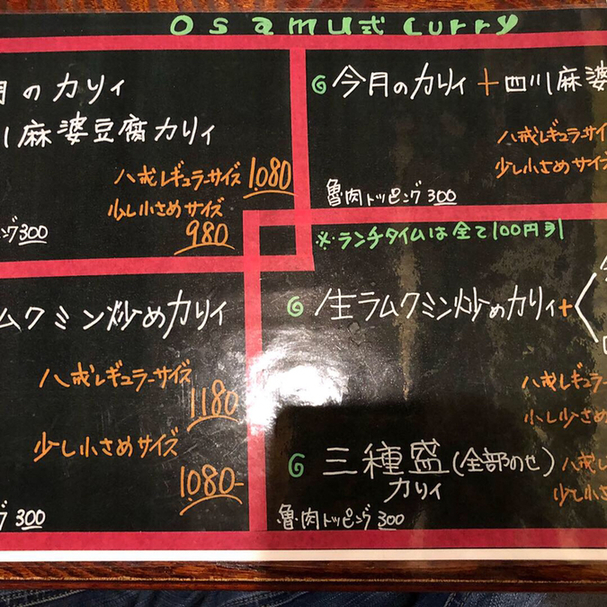 osamu式 curry
月のカリィ
川麻婆豆腐カリィ
八戒レギュラーサイズ 1080
少し小さめサイズ
980
ピング300
今月のカリィ+四川麻婆
八戒レギュラー
少し小さめサ
魯肉トッピング300
※ランチタイムは全て100円引
ラムクミン炒めカリィ
八戒レギュラーサイズ
1180
少し小さめサイズ
1080-
グ300
生ラムクミン炒めカリィ+
八戒レギュラ
少し小さめ
三種盛(全部のせ)
カリィ
八戒レ
少し小さ
魯肉トッピング300